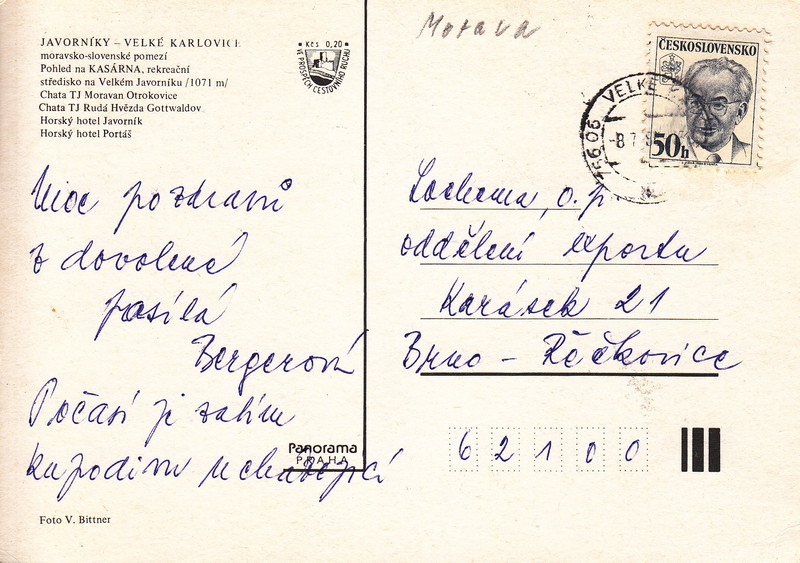 Morava
JAVORNÍKY – VELKÉ KARLOVICE
moravsko-slovenské pomezí
Pohled na KASÁRNA, rekreační
středisko na Velkém Javorníku /1071 m/
Chata TJ Moravan Otrokovice
Chata TJ Rudá Hvězda Gottwaldov
Horský hotel Javorník
Horský hotel Portáš
Kčs 0,20
VE PROSPĚCH CESTOVNÍHO RUCHU
ČESKOSLOVENSKO
50h
VELKÉ
756 06
-8.7.
Moc pozdravů
z dovolené
posílá
Bergerová
Počasí je zatím
kupodivu ucházející
Lachema, o.p.
oddělení exportu
Karásek 21
Brno – Řečkovice
62100
Panorama
PRAHA
Foto V. Bittner